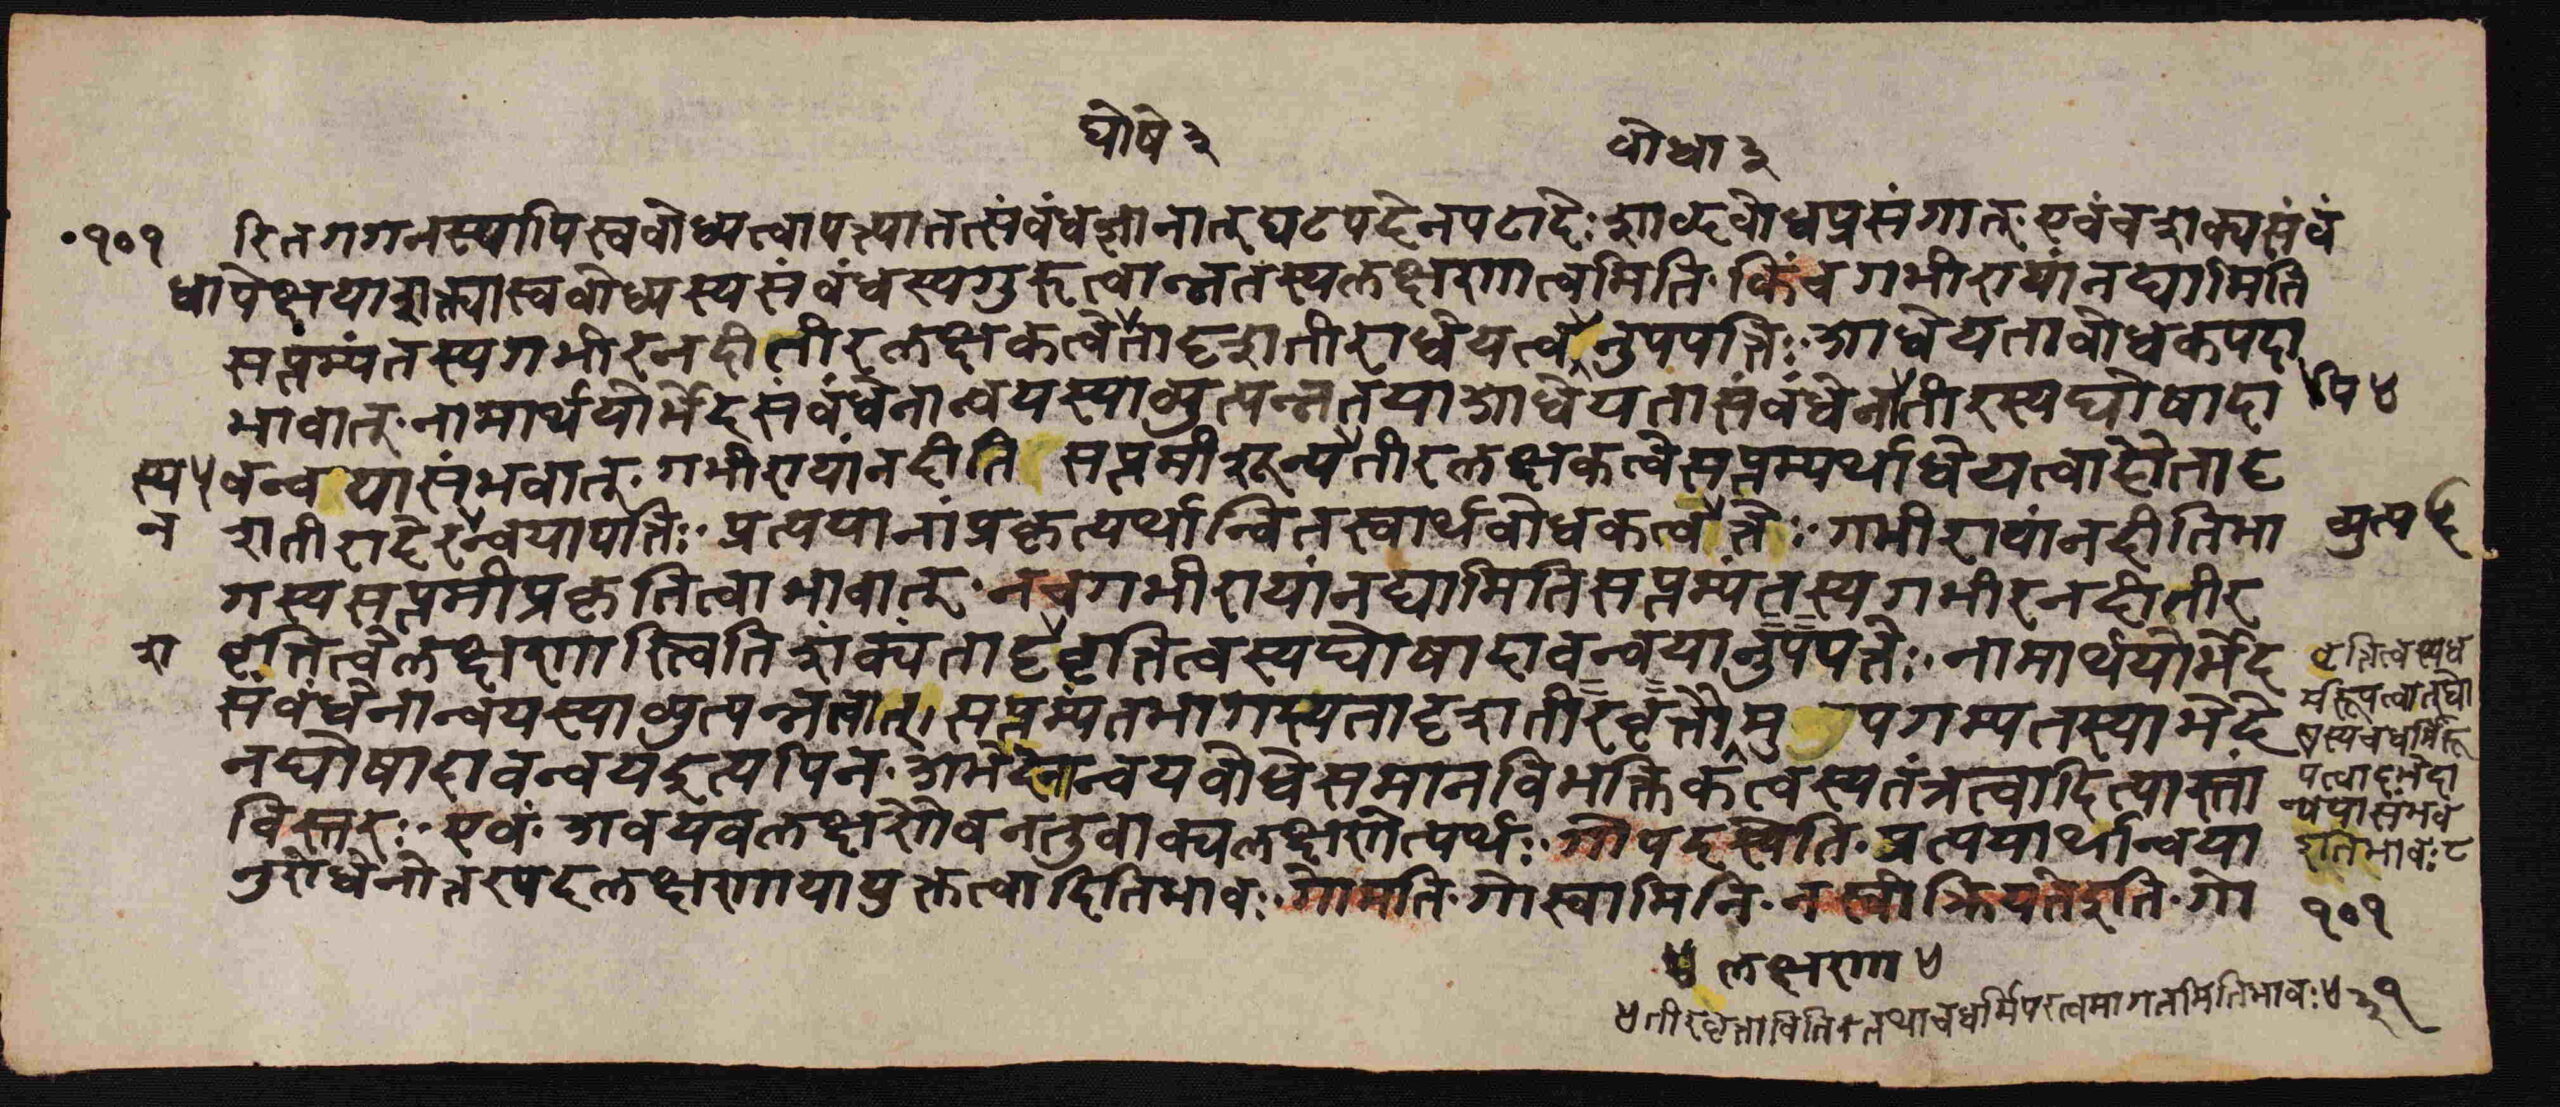 घोषे ३ वोधा ३
१०१ रिति गगनस्यापि स्ववोध्यत्वापत्त्या तत्संवंधज्ञानात् घटपदेन पटादेः शाव्दवोधप्रसंगात् एवं च शक्यसंवं
धापेक्षया शक्त्या स्ववोध्यस्य संवंधस्य गुरुत्वान्न तस्य लक्षणात्वमिति किंच गभीरायां नद्यामिति
सप्तम्यंतस्य गभीरनदीतीरलक्षकत्वे तादृशतीराधेयत्वानुपपत्तिः आधेयतावोधकपदा
भावात् नामार्थयोर्भेदसंवंधेनान्वयस्याव्युत्पन्नतया आधेयतासंवंधेनातीरस्य घोषादा पि ४
स्य ५ वन्वयासंभवात् गभीरायां नदीति सप्तमीशून्ये तीरलक्षकत्वे सप्तम्यर्थाधेयत्वादौ तादृ
न शतीरादेरन्वयापत्तिः प्रत्ययानां प्रकृत्यर्थान्वितस्वार्थवोधकत्व त्तेः गभीरायां नदीति भा व्युत्प ६
गस्य सप्तमीप्रकृतित्वाभावात् न च गभीरायां नद्यामिति सप्तम्यंतस्य गभीरनदीतीर
श वृत्तित्वे लक्षणास्त्विति शंक्यं तादृवृत्तित्वस्य घोषादावन्वयानुपपत्तेः नामार्थयोर्भेद
संवंधेनान्वयस्याव्युत्पन्नत्वात् सप्तम्यंतभागस्य तादृशतीरवृत्तौ मुपगम्य तस्याभेदे
न घोषादावन्वय इत्यपि न अभेदेनान्वयवोधे समानविभक्तिकत्वस्य तंत्रत्वादित्यास्तां
विस्तरः एवं अवयवलक्षणैव न तु वाक्यलक्षणेत्यर्थः गोपदस्येति प्रत्ययार्थान्वया
नुरोधेनोत्तरपदलक्षणाया युक्तत्वादिति भावः गोमति गोस्वामिनि न स्वीक्रियते इति गो
वृत्तित्वस्य ध
र्मरूपत्वात् घो
षस्य च धर्मिरू
पत्वादभेदा
न्वयासंभव
इति भावः ८
१०१
४ लक्षणा ४
४ तीरवृत्ताविति तथा च धर्मिपरत्वमागतमिति भावः ४ ३१